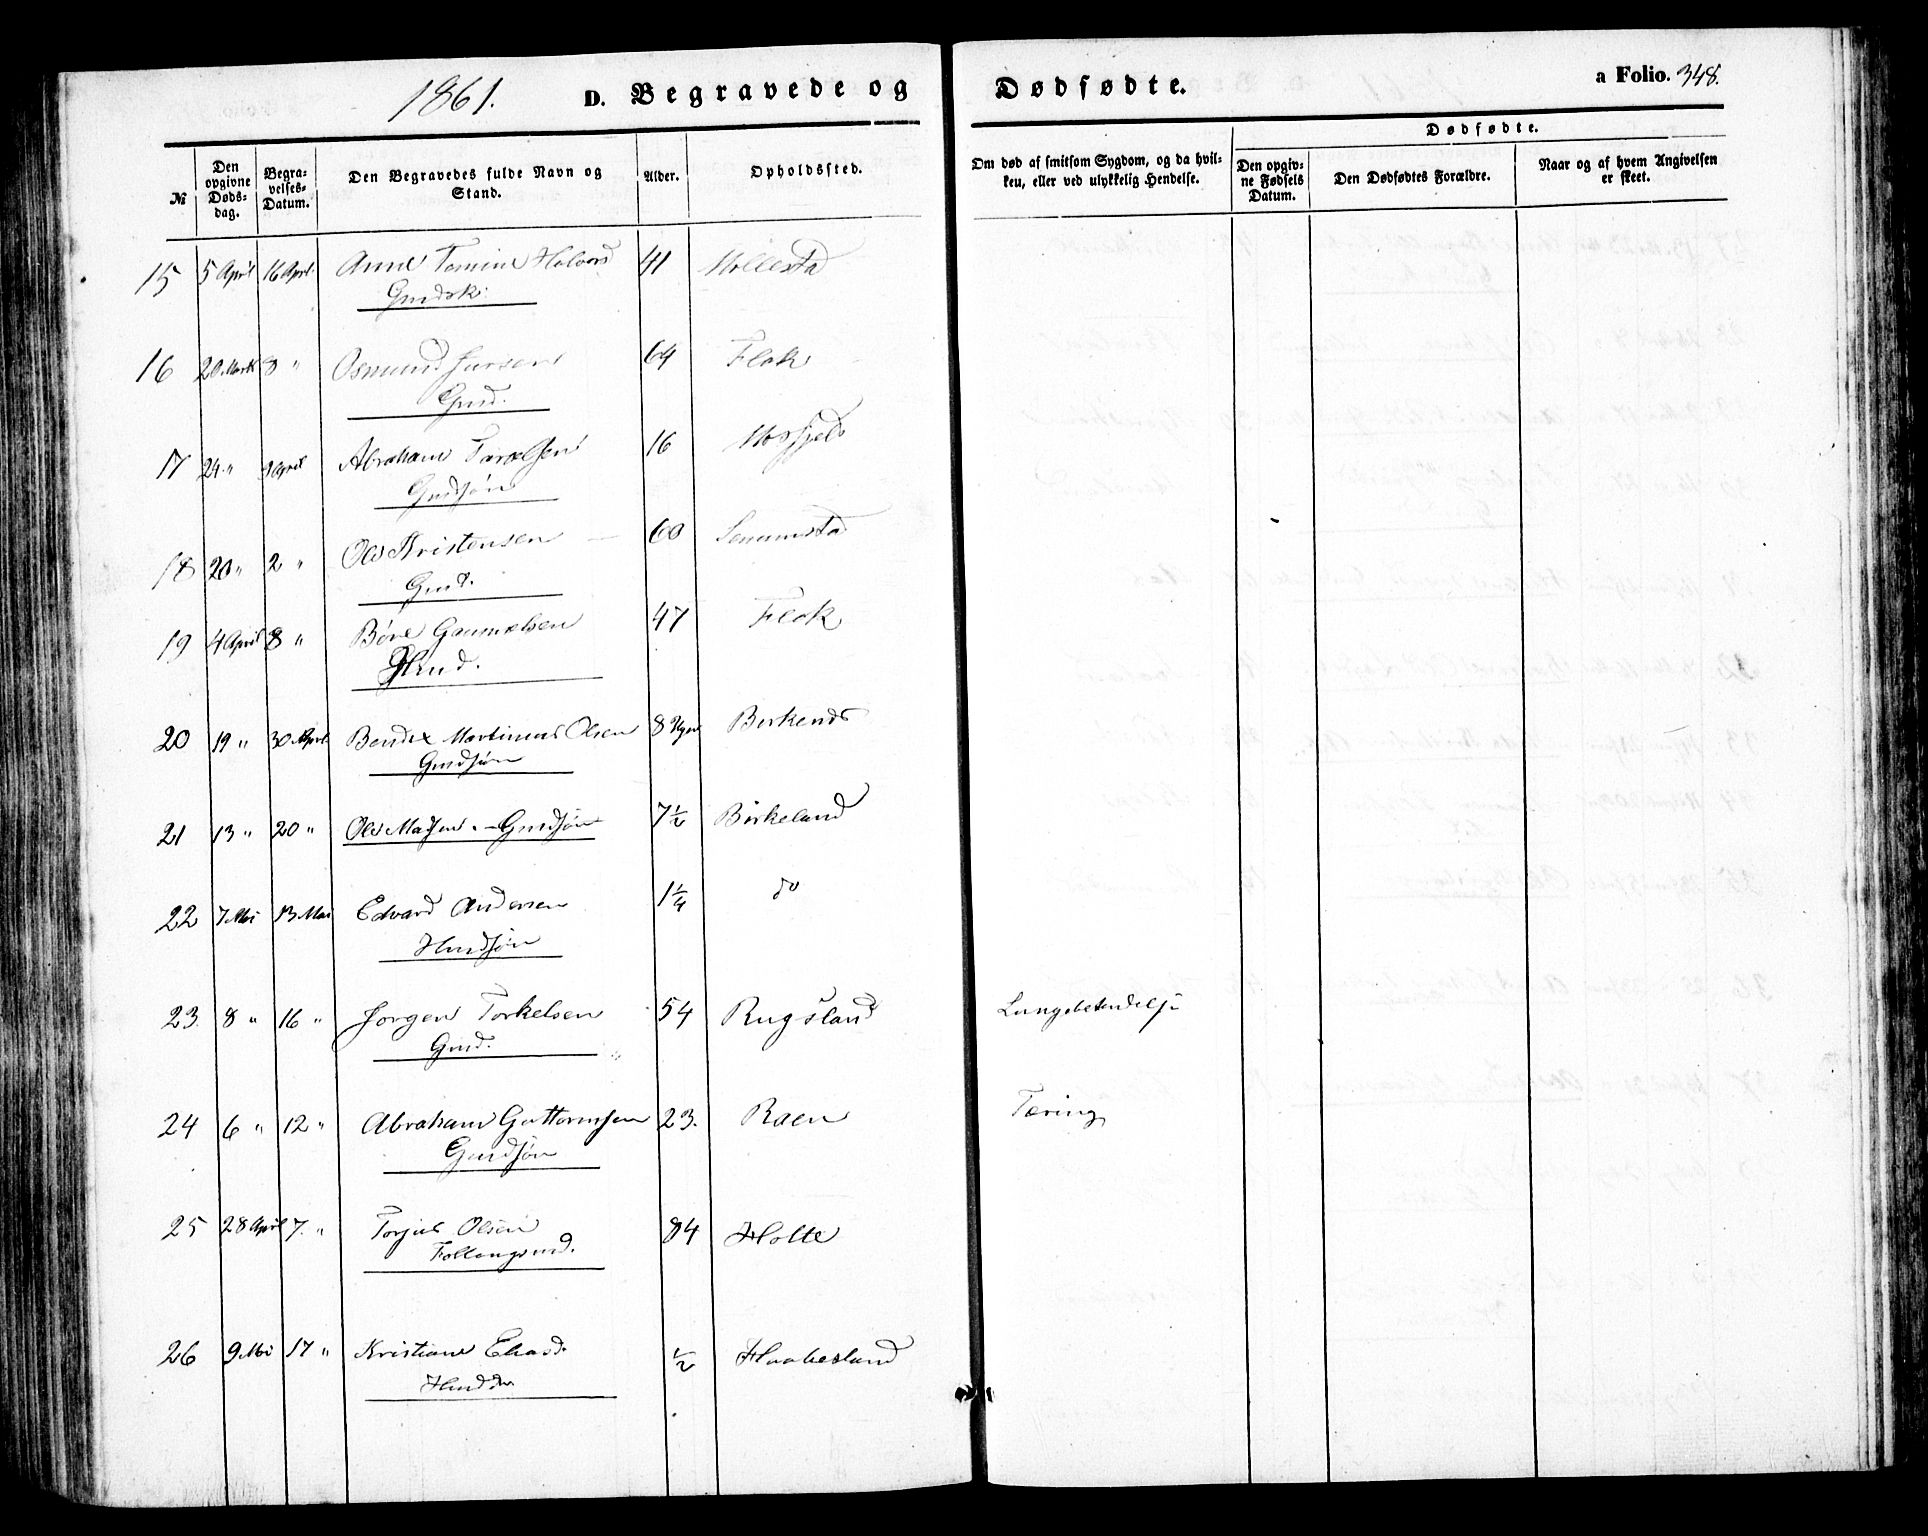 1861. D. Begravede og Dødfødte. a Folio. 348.
Dødfødte.
№ Den opgivne Dødsdag. Begravelses-Datum. Den Begravedes fulde Navn og Stand. Alder. Opholdssted. Om død af smitsom Sygdom, og da hvilken, eller ved ulykkelig Hendelse. Den opgivne Fødsels Datum. Den Dødfødtes Forældre. Naar og af hvem Angivelsen er skeet.
15 5 April 16 April Anne Tomine Halvorsd 41 Mollestad
Gmdsk.
16 20 Marts 8 " Osmund Jursen 64 Flak
Gmd.
17 24 " 9 April Abraham Taralsen 16 Mosfjeld
Gmdsøn
18 20 " 2 " Ole Kristensen 60 Senumstad
Gmd.
19 4 April 8 " Böre Gaumelsen 47 Flak
Hmd.
20 19 " 30 April Bendix Martinius Olsen 8 Uger Birkenes
Gmdsøn
21 13 " 20 " Ole Madsen - Gmdsøn 7½ Birkeland
22 7 Mai 13 Mai Edvard Andersen 1¼ do
Hmdsøn
23. 8 " 16 " Jorgen Torkelsen 54 Rugsland Lungebetendelse
Gmd.
24 6 " 12 " Abraham Guttormsen 23. Raen Tæring
Gmdsøn
25 28 April 7. " Torjus Olsen 84 Holte
Follaugsmd.
26 9 Mai 17 " Kristiane Eliasd. ½ Haabesland
Hmddtr